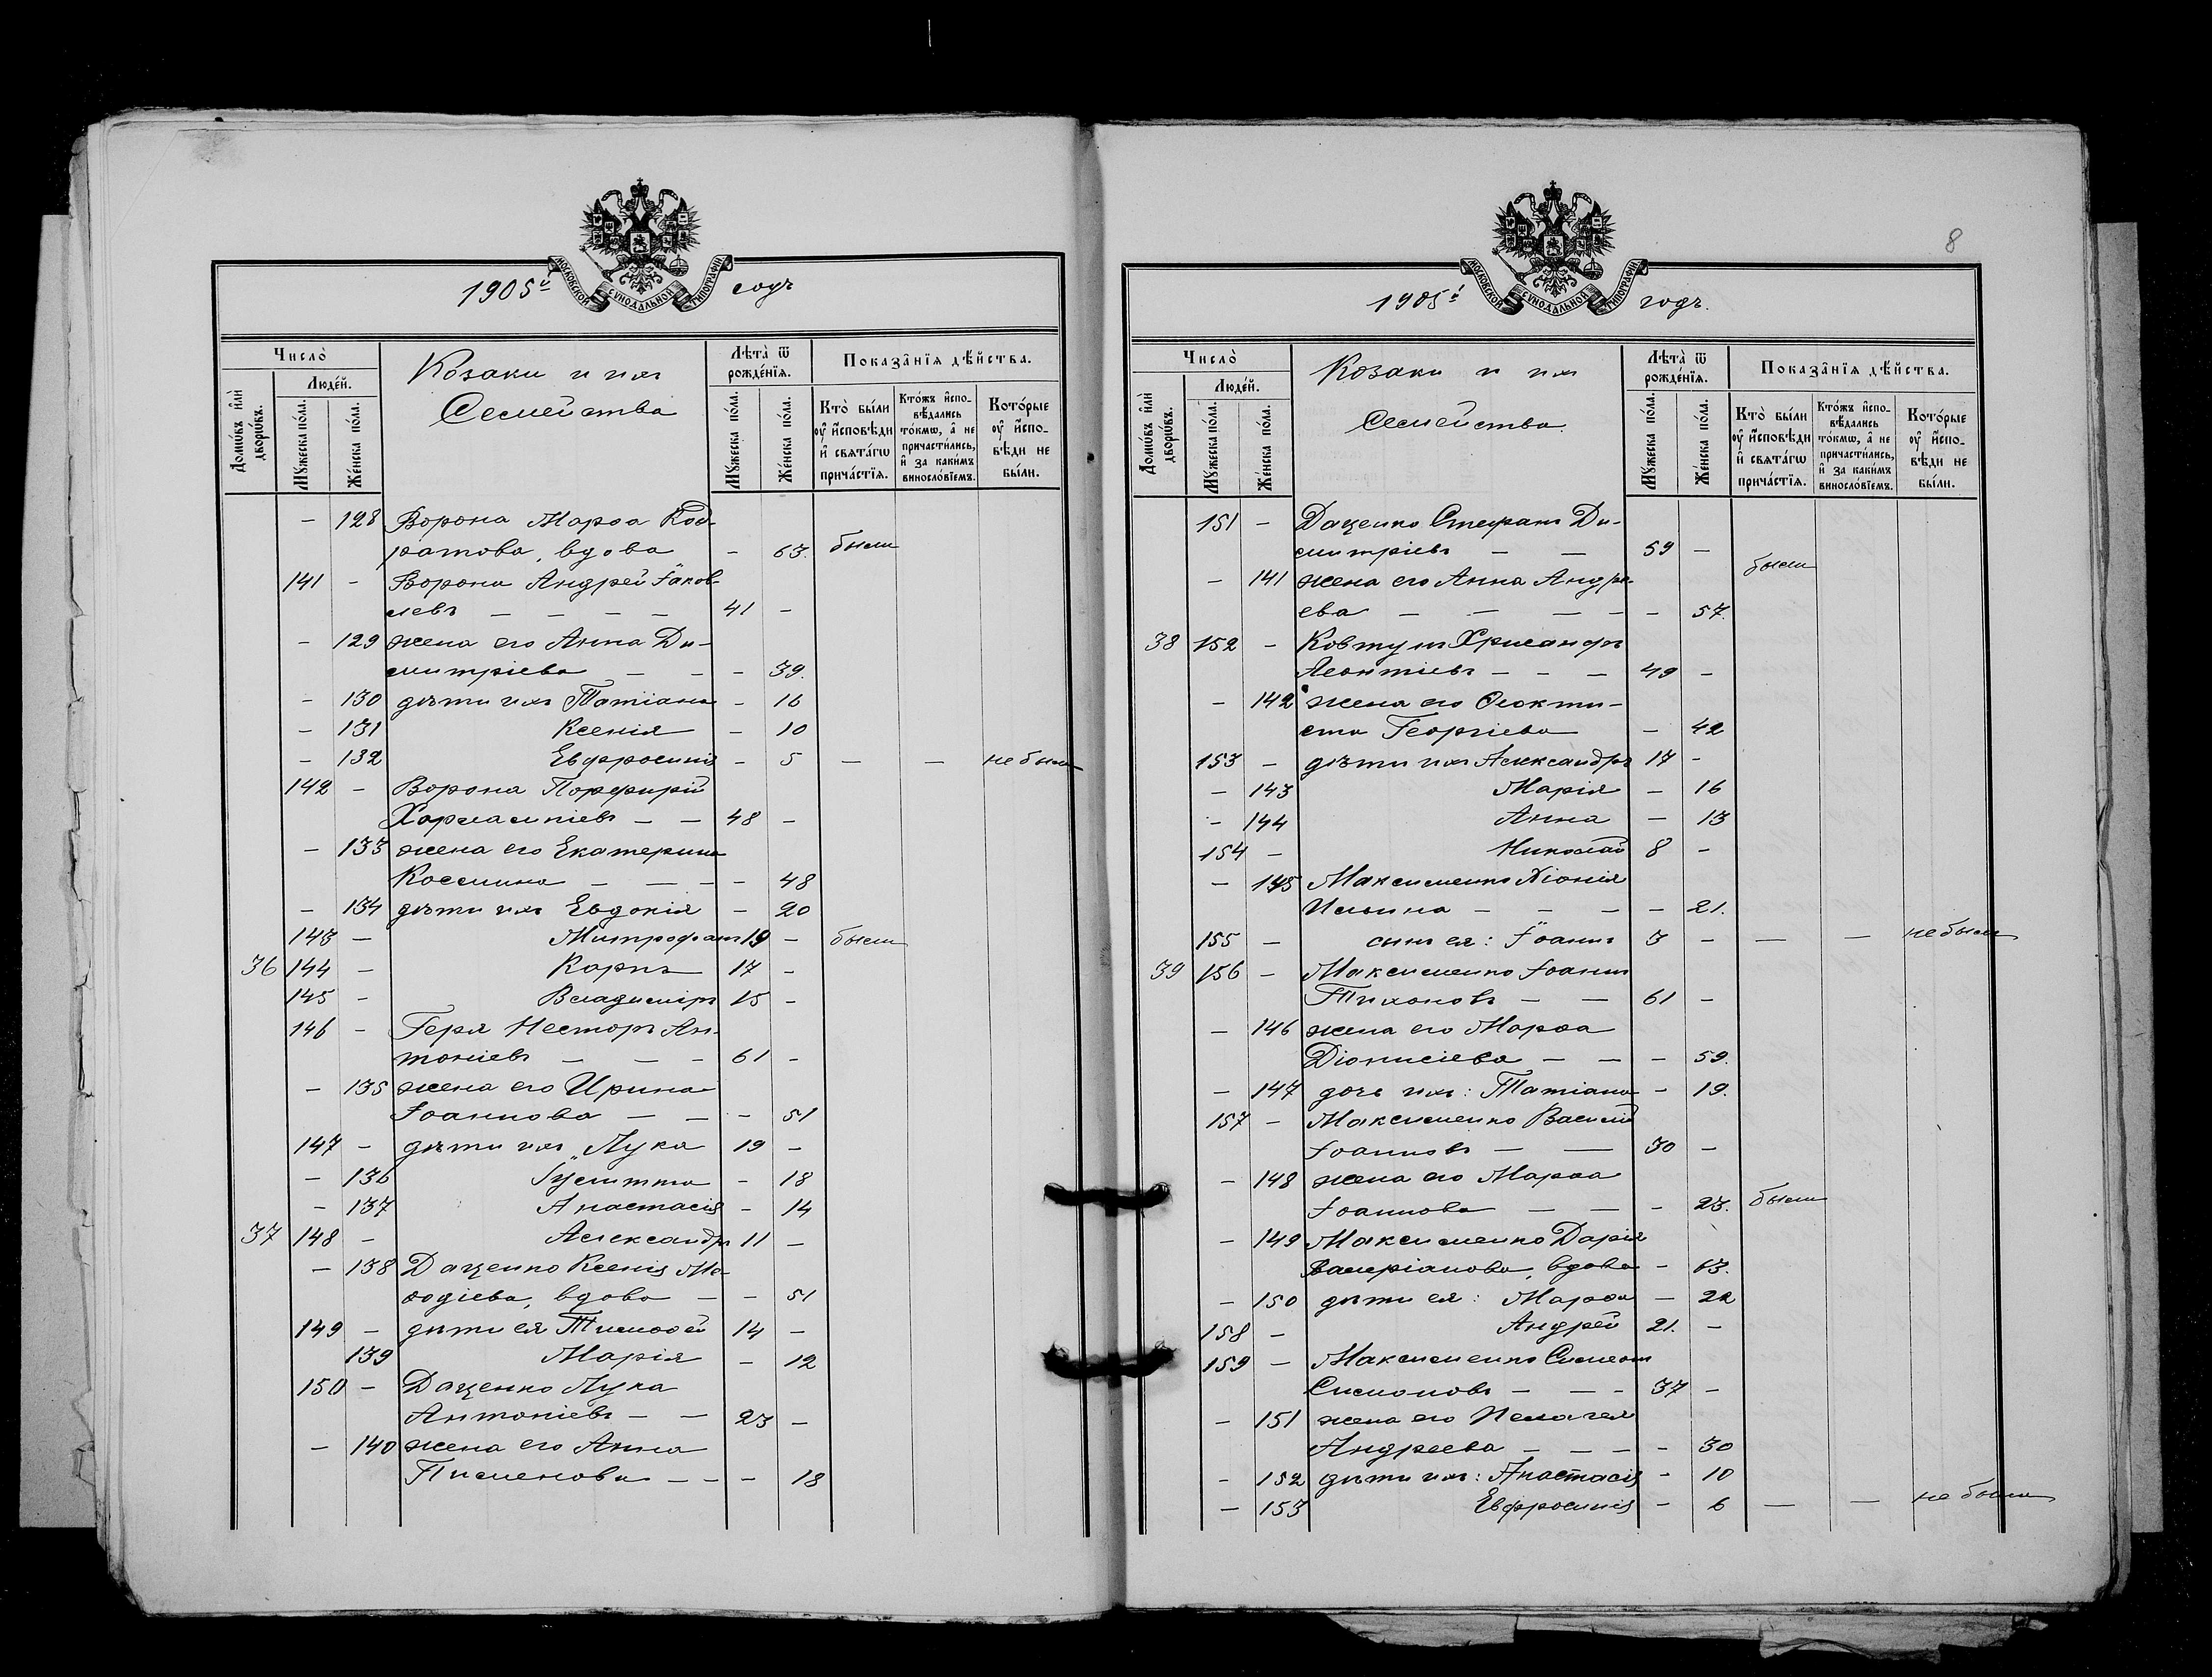 8
1905й МОСКОВСКОЙ СѴНОДАЛЬНОЙ ТИПОГРАФІИ годъ
Число̀
Домѡ́въ и҆лѝ дворѡ́въ.
Люде́й.
Мꙋ́жеска по́ла.
Же́нска по́ла.
Козаки и ихъ
Семейства
Лѣта̀ ѿ рожде́нїѧ.
Мꙋ́жеска по́ла.
Же́нска по́ла.
Показа̑нїѧ дѣ́йства.
Кто̀ бы́ли оу҆ и҆сповѣ́ди и҆ свѧта́гѡ прича́стїѧ.
Кто́жъ и҆спо-вѣ́дались то́кмѡ, а҆ не причасти́лись, и҆ за каки́мъ винослόвїемъ.
Кото́рые оу҆ и҆спо-вѣ́ди не бы́ли.
- 128 Ворона Марѳа Код-
ратова, вдова - 63. были
141 - Ворона Андрей Іаков-
левъ — — — — 41 -
- 129 жена его Анна Ди-
митріева — - - 39.
- 130 дѣти ихъ Татіана - 16
- 131 Ксенія - 10
- 132 Евфросинія - 5 — — не были
142 - Ворона Порфирій
Харлампіевъ — — 48 -
- 133 жена его Екатерина
Коссмина — — - - 48
- 134 дѣти ихъ Евдокія - 20
143 — Митрофанъ 19 - были
36 144 - Карпъ 17 -
145 - Владиміръ 15 -
146 - Геря Несторъ Ан-
тоніевъ — — - 61 -
- 135 жена его Ирина
Іоаннова — — - 51
147 - дѣти ихъ „ Лука 19 -
- 136 Іулитта - 18
- 137 Анастасія - 14
37 148 - Александръ 11 -
- 138 Даценко Ксенія Ме-
ѳодіева, вдова — - 51
149 - дѣти ея Тимоѳей 14 -
139 Марія - 12
150 - Даценко Лука
Антоніевъ — — 23 -
- 140 жена его Анна
Пименова — - - 18
1905й МОСКОВСКОЙ СѴНОДАЛЬНОЙ ТИПОГРАФІИ годъ.
Число̀
Домѡ́въ и҆лѝ дворѡ́въ.
Люде́й.
Мꙋ́жеска по́ла.
Же́нска по́ла.
Козаки и ихъ
Семейства.
Лѣта̀ ѿ рожде́нїѧ.
Мꙋ́жеска по́ла.
Же́нска по́ла.
Показа̑нїѧ дѣ́йства.
Кто̀ бы́ли оу҆ и҆сповѣ́ди и҆ свѧта́гѡ прича́стїѧ.
Кто́жъ и҆спо-вѣ́дались то́кмѡ, а҆ не причасти́лись, и҆ за каки́мъ винослόвїемъ.
Кото́рые оу҆ и҆спо-вѣ́ди не бы́ли.
151 - Даценко Стефанъ Ди-
митріевъ — — 59 -
- 141 жена его Анна Андре- были
ева — — — - - 57.
38 152 - Ковтунъ Хрисанфъ
Леонтіевъ - - - 49 -
- 142 жена его Ѳеокти-
ста Георгіева - 42
153 - дѣти ихъ Александръ 17 -
- 143 Марія - 16
- 144 Анна - 13
154 - Николай 8 -
- 145 Максименко Хіонія
Ильина - - - - 21.
155 - сынъ ея: Іоаннъ 3 - — — не были
39 156 - Максименко Іоаннъ
Тихоновъ — — 61 -
- 146 жена его Марѳа
Діонисіева — — - 59.
- 147 дочь ихъ: Татіана - 19.
157 - Максименко Василій
Іоанновъ — — 30 -
- 148 жена его Марѳа
Іоаннова — — - 23. были
- 149 Максименко Дарія
Валеріанова, вдова - 63.
- 150 дѣти ея: Марѳа — 22
158 - Андрей 21. -
159 - Максименко Симеонъ
Симоновъ — — - 37 -
- 151 жена его Пелагея
Андреева — — — - 30
- 152 дѣти ихъ: Анастасія - 10
- 153 Евфросинія - 6 — — не были